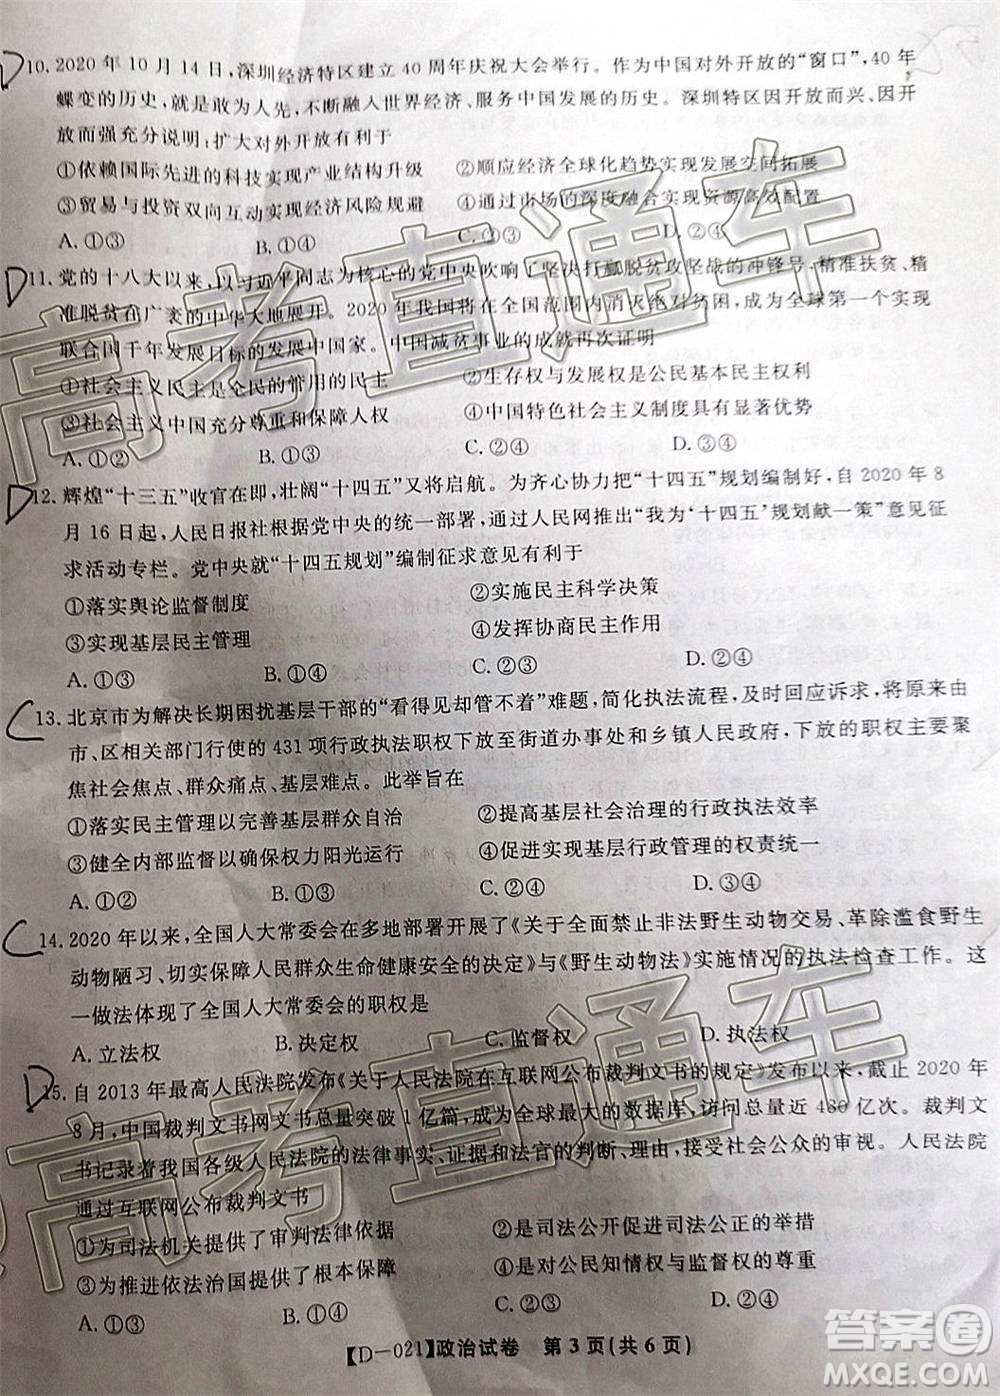 10. 2020年10月14日,深圳经济特区建立40周年庆祝大会举行。作为中国对外开放的“窗口”,40年
蝶变的历史,就是敢为人先、不断融入世界经济、服务中国发展的历史。深圳特区因开放而兴、因开
放而强充分说明:扩大对外开放有利于
①依赖国际先进的科技实现产业结构升级 ②顺应经济全球化趋势实现发展空间拓展
③贸易与投资双向互动实现经济风险规避 ④通过市场的深度融合实现资源高效配置
A. ①③ B. ①④ C. ②③ D. ②④
11. 党的十八大以来,以习近平同志为核心的党中央吹响了坚决打赢脱贫攻坚战的冲锋号,精准扶贫、精
准脱贫在广袤的中华大地展开。2020年我国将在全国范围内消灭绝对贫困,成为全球第一个实现
联合国千年发展目标的发展中国家。中国减贫事业的成就再次证明
①社会主义民主是全民的管用的民主 ②生存权与发展权是公民基本民主权利
③社会主义中国充分尊重和保障人权 ④中国特色社会主义制度具有显著优势
A. ①② B. ①③ C. ②④ D. ③④
12. 辉煌“十三五”收官在即,壮阔“十四五”又将启航。为齐心协力把“十四五”规划编制好,自2020年8
月16日起,人民日报社根据党中央的统一部署,通过人民网推出“我为‘十四五’规划献一策”意见征
求活动专栏。党中央就“十四五规划”编制征求意见有利于
①落实舆论监督制度 ②实施民主科学决策
③实现基层民主管理 ④发挥协商民主作用
A. ①③ B. ①④ C. ②③ D. ②④
13. 北京市为解决长期困扰基层干部的“看得见却管不着”难题,简化执法流程,及时回应诉求,将原来由
市、区相关部门行使的431项行政执法职权下放至街道办事处和乡镇人民政府,下放的职权主要聚
焦社会焦点、群众痛点、基层难点。此举旨在
①落实民主管理以完善基层群众自治 ②提高基层社会治理的行政执法效率
③健全内部监督以确保权力阳光运行 ④促进实现基层行政管理的权责统一
A. ①② B. ①③ C. ②④ D. ③④
14. 2020年以来,全国人大常委会在多地部署开展了《关于全面禁止非法野生动物交易、革除滥食野生
动物陋习、切实保障人民群众生命健康安全的决定》与《野生动物法》实施情况的执法检查工作。这
一做法体现了全国人大常委会的职权是
A. 立法权 B. 决定权 C. 监督权 D. 执法权
15. 自2013年最高人民法院发布《关于人民法院在互联网公布裁判文书的规定》发布以来,截止2020年
8月,中国裁判文书网文书总量突破1亿篇,成为全球最大的数据库,访问总量近480亿次。裁判文
书记录着我国各级人民法院的法律事实、证据和法官的推断,直接接受社会公众的审视。人民法院
通过互联网公布裁判文书
①为司法机关提供了审判法律依据 ②是司法公开促进司法公正的举措
③为推进依法治国提供了根本保障 ④是对公民知情权与监督权的尊重
A. ①③ B. ①④ C. ②③ D. ②④
【D-021】政治试卷 第3页(共6页)
高考直通车
高考直通车
答案圈
MXQE.COM
D
D
D
C
C
D